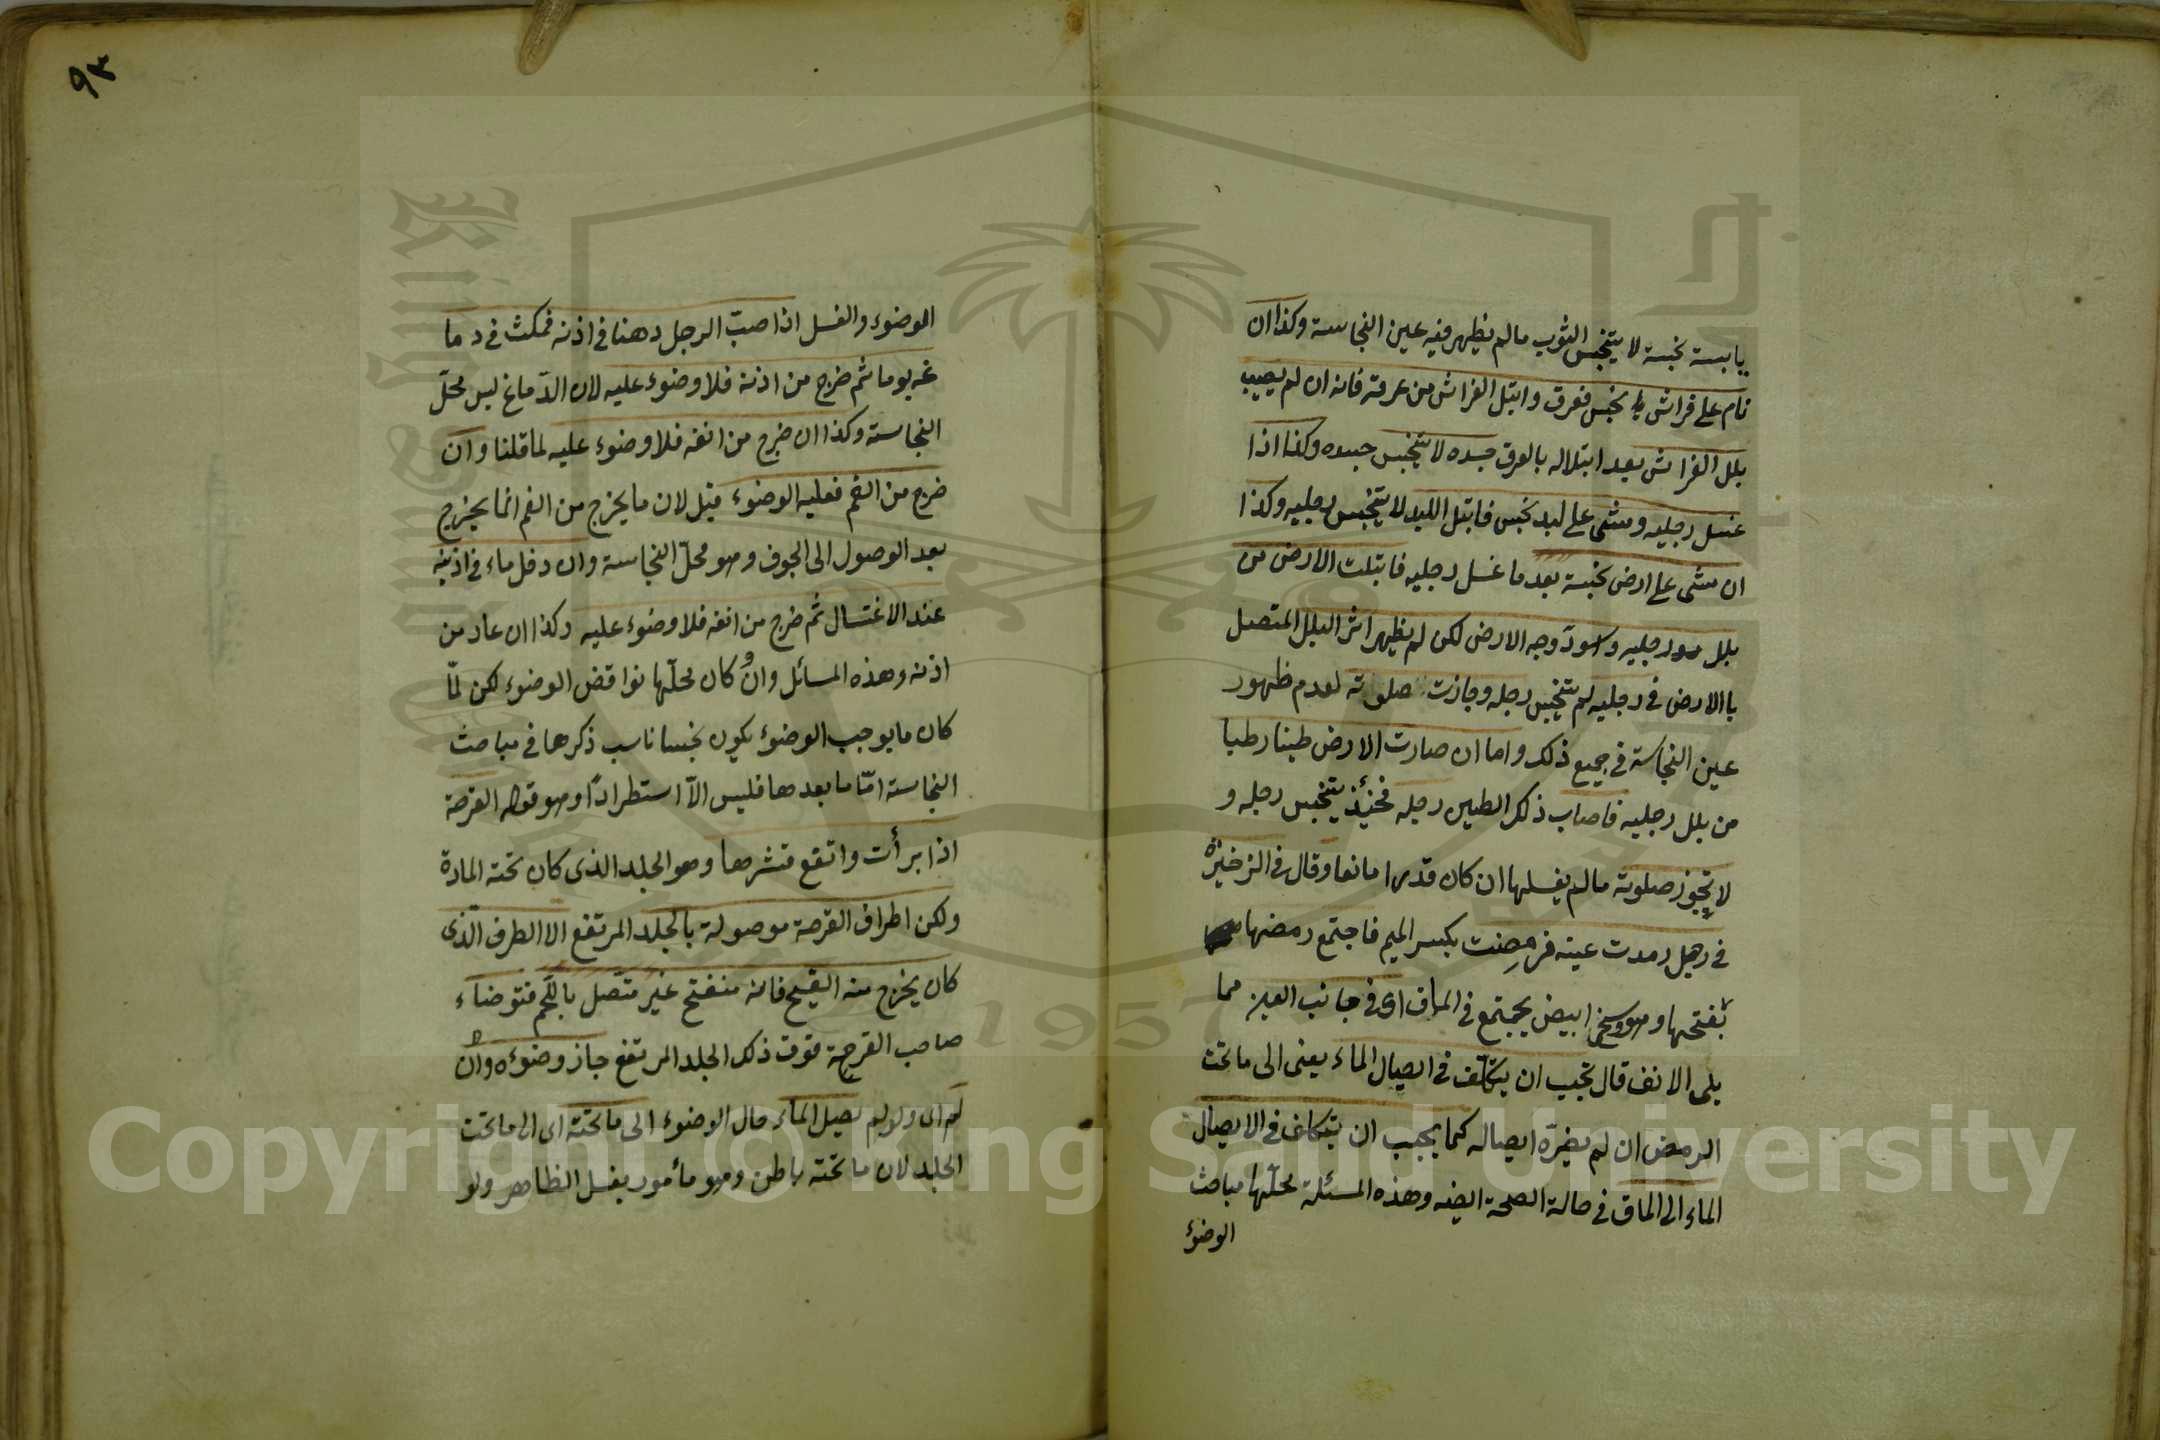 يابسة نجسة لا يتنجس الثوب مالم يظهر فيه عين النجاسة وكذا ان
نام على فراش نجس فعرق وابتل الفراش من عرقه فانه ان لم يصب
بلل الفراش بعد ابتلاله بالعرق جسده لا يتنجس جسده وكذا اذا
غسل رجليه ومشى على لبد نجس فابتل اللبد لا يتنجس رجليه وكذا
ان مشى على ارض نجسة بعد ما غسل رجليه فابتلت الارض من
بلل رجليه واسودّ وجه الارض لكن لم يظهر اثر البلل المتصل
باالارض في رجليه لم يتنجس رجله وجازت صلوته لعدم ظهور
عين النجاسة في جميع ذلك واما ان صارت الارض طينا رطبا
من بلل رجليه فاصاب ذلك الطين رجله فحينئذ يتنجس رجله و
لا يجوز صلوته مالم يغسلها ان كان قدرا مانعا وقال في الزخيرة
في رجل رمدت عينه فرمصت بكسر الميم فاجتمع رمصها
بفتحها وهو وسخ ابيض يجتمع في الماق اى في جانب العين مما
يلى الانف قال يجب ان يتكلف في ايصال الماء يعنى الى ما تحت
الرمص ان لم يضرّه ايصاله كما يجب ان يتكلف في الايصال
الماء الى الماق في حالة الصحة ايضه وهذه المسئلة محلّها مباحث
الوضؤ
٩٣
الوضوء والغسل اذا صبّ الرجل دهنا في اذنه فمكث في دما
غه يوما ثم خرج من اذنه فلا وضوء عليه لان الدّماغ ليس محلّ
النجاسة وكذا ان خرج من انفه فلا وضوء عليه لما قلنا وان
خرج من الفم فعليه الوضوء قيل لان ما يخرج من الفم انما يخرج
بعد الوصول الى الجوف وهو محلّ النجاسة وان دخل ماء في اذنه
عند الاغتسال ثم خرج من انفه فلا وضوء عليه وكذا ان عاد من
اذنه وهذه المسائل وان كان محلّها نواقض الوضوء لكن لمّا
كان ما يوجب الوضوء يكون نجسا ناسب ذكرها في مباحث
النجاسة امّا ما بعدها فليس الاّ استطرادًا وهو قوله القرحة
اذا برأت وارتفع قشرها وهو الجلد الذى كان تحته المادة
ولكن اطراف القرحة موصولة بالجلد المرتفع الا الطرف الّذى
كان يخرج منه القيح فانه منفتح غير متّصل باللّحم فتوضاء
صاحب القرحة فوق ذلك الجلد المرتفع جاز وضوءه وان
لم اى ولو لم يصل الماء حال الوضوء الى ما تحته اى الى ما تحت
الجلد لان ما تحته باطن وهو مأمور بغسل الظاهر ولو
Copyright © King Saud University
1957